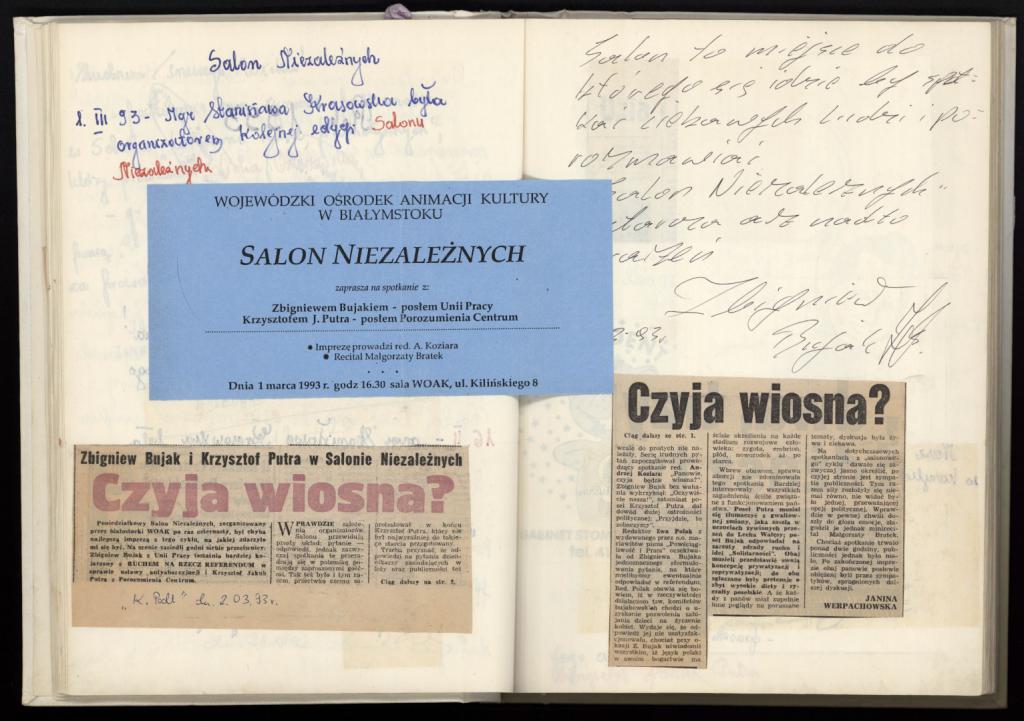 Salon Niezależnych
1. III 93 - Mgr Stanisława Krasowska była
organizatorem kolejnej edycji Salonu
Niezależnych
WOJEWÓDZKI OŚRODEK ANIMACJI KULTURY
W BIAŁYMSTOKU
SALON NIEZALEŻNYCH
zaprasza na spotkanie z:
Zbigniewem Bujakiem - posłem Unii Pracy
Krzysztofem J. Putra - posłem Porozumienia Centrum
• Imprezę prowadzi red. A. Koziara
• Recital Małgorzaty Bratek
• • •
Dnia 1 marca 1993 r. godz 16.30 sala WOAK, ul. Kilińskiego 8
Zbigniew Bujak i Krzysztof Putra w Salonie Niezależnych
Czyja wiosna?
Poniedziałkowy Salon Niezależnych, zorganizowany
przez białostocki WOAK po raz czternasty, był chyba
najlepszą imprezą z tego cyklu, na jakiej zdarzyło
mi się być. Na scenie zasiedli godni siebie przeciwnicy:
Zbigniew Bujak z Unii Pracy (ostatnio bardziej ko-
jarzony z RUCHEM NA RZECZ REFERENDUM w
sprawie ustawy antyaborcyjnej) i Krzysztof Jakub
Putra z Porozumienia Centrum.
WPRAWDZIE założe-
nia organizatorów
Salonu przewidują
prosty układ: pytanie —
odpowiedź, jednak zazwy-
czaj spotkania te przera-
dzają się w polemikę po-
między zaproszonymi go-
śćmi. Tak też było i tym ra-
zem, przeciwko czemu za-
protestował w końcu
Krzysztof Putra, który
był najwyraźniej do takie-
go starcia przygotowany.
Trzeba przyznać, że od-
powiedzi na pytania dzien-
nikarzy zasiadających w
sali oraz publiczności ten
poseł miał gotowe.
Ciąg dalszy na str. 2.
„K. Podl" dn. 2.03.93r.
Salon to miejsce do
którego się idzie by spot-
kać ciekawych ludzi i po-
rozmawiać
Salon Niezależnych"
aż nadto
Zbigniew
Bujak
93r.
Czyja wiosna?
Ciąg dalszy ze str. 1.
wcale do prostych nie na-
leżały. Serię trudnych py-
tań zapoczątkował prowa-
dzący spotkanie red. An-
drzej Koziara: „Panowie,
czyja będzie wiosna?".
Zbigniew Bujak bez waha-
nia wykrzyknął: „Oczywiś-
cie nasza!", natomiast po-
seł Krzysztof Putra dał
dowód dużej ostrożności
politycznej: „Przyjdzie, to
zobaczymy".
Redaktor Ewa Polak z
wydawanego przez o.o. ma-
rianitów pisma „Powściąg-
liwość i Praca" oczekiwa-
ła od Zbigniewa Bujaka
jednoznacznego sformuło-
wania pytania, na które
mielibyśmy ewentualnie
odpowiadać w referendum.
Red. Polak obawia się bo-
wiem, iż w rzeczywistości
działaczom tzw. komitetów
bujakowskich chodzi o u-
zyskanie pozwolenia zabi-
jania dzieci na życzenie
kobiet. Wydaje się, że od-
powiedź jej nie usatysfak-
cjonowała, chociaż przy o-
kazji Z. Bujak uświadomił
wszystkim, iż język polski
w swoim bogactwie ma
ściśle określenia na każde
stadium rozwojowe czło-
wieka: zygota, embrion,
płód, noworodek aż po
starca.
Wbrew obawom, sprawa
aborcji nie zdominowała
tego spotkania. Bardziej
interesowały wszystkich
zagadnienia ściśle związa-
ne z funkcjonowaniem pań-
stwa. Poseł Putra musiał
się tłumaczyć z gwałtow-
nej zmiany, jaka zaszła w
uczuciach żywionych przez
PC do Lecha Wałęsy; po-
seł Bujak odpowiadał na
zarzuty zdrady ruchu i
idei „Solidarności". Obaj
musieli przedstawić swoją
koncepcję prywatyzacji i
reprywatyzacji; do obu
zgłaszane były pretensje o
zbyt wysokie diety i ry-
czałty poselskie. A że każ-
dy z panów miał zupełnie
inne poglądy na poruszane
tematy, dyskusja była ży-
wa i ciekawa.
Na dotychczasowych
spotkaniach z „salonowe-
go" cyklu dawało się za-
zwyczaj jasno określić, po
czyjej stronie jest sympa-
tia publiczności. Tym ra-
zem siły rozłożyły się nie-
mal równo, nie widać by-
ło jednej, przeważającej
opcji politycznej. Wpraw-
dzie w pewnej chwili do-
szły do głosu emocje, zła-
godził je jednak minireci-
tal Małgorzaty Bratek.
Chociaż spotkanie trwało
ponad dwie godziny, pub-
liczności jednak było ma-
ło. Po zakończonej impre-
zie obaj panowie posłowie
oblężeni byli przez sympa-
tyków, spragnionych dal-
szej dyskusji.
JANINA
WERPACHOWSKA